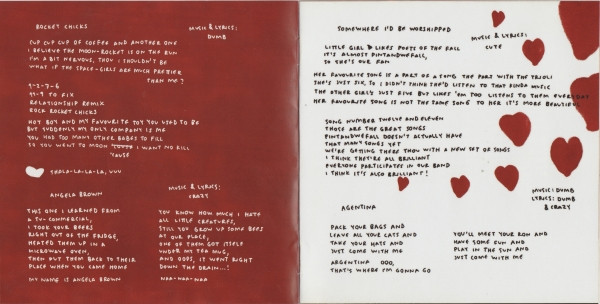 ROCKET CHICKS
MUSIC & LYRICS:
DUMB
CUP CUP CUP OF COFFEE AND ANOTHER ONE
I BELIEVE THE MOON-ROCKET IS ON THE RUN
I'M A BIT NERVOUS, THOU I SHOULDN'T BE
WHAT IF THE SPACE-GIRLS ARE MUCH PRETIER
THAN ME?
9-2-7-6
99-9 TO FIX
RELATIONSHIP REMIX
ROCK ROCKET CHICKS
HOT BOY AND MY FAVOURITE TOY YOU USED TO BE
BUT SUDDENLY MY ONLY COMPANY IS ME
YOU HAD TOO MANY OTHER BABES TO FILL
SO YOU WENT TO MOON I WANT NO KILL
'CAUSE
TRALA-LA-LA-LA, UUU
ANGELA BROWN
MUSIC & LYRICS:
CRAZY
THIS ONE I LEARNED FROM
A TV-COMMERCIAL,
I TOOK YOUR BEERS
RIGHT OUT OF THE FRIDGE,
HEATED THEM UP IN A
MICROWAVE OVEN,
THEN PUT THEM BACK TO THEIR
PLACE WHEN YOU CAME HOME
MY NAME IS ANGELA BROWN
YOU KNOW HOW MUCH I HATE
ALL LITTLE CREATURES,
STILL YOU GREW UP SOME BEES
AT OUR PLACE,
ONE OF THEM GOT ITSELF
UNDER MY TEA MUG,
AND OOPS, IT WENT RIGHT
DOWN THE DRAIN...!
NAA-NAA-NAA
SOMEWHERE I'D BE WORSHIPPED
MUSIC & LYRICS:
CUTE
LITTLE GIRL LIKES POETS OF THE FALL
IT'S ALMOST PINTANDWEFALL,
SO SHE'S OUR FAN
HER FAVOURITE SONG IS A PART OF A SONG THE PART WITH THE TRIOLI
SHE'S JUST SIX, SO I DIDN'T THINK SHE'D LISTEN TO THAT KINDA MUSIC
THE OTHER GIRLS JUST FIVE BUT LIKES 'EM TOO LISTENS TO THEM EVERYDAY
HER FAVOURITE SONG IS NOT THE SAME SONG TO HER IT'S MORE BEAUTIFUL
SONG NUMBER TWELVE AND ELEVEN
THOSE ARE THE GREAT SONGS
PINTANDWEFALL DOESN'T ACTUALLY HAVE
THAT MANY SONGS YET
WE'RE GETTING THERE THOU WITH A NEW SET OF SONGS
I THINK THEY'RE ALL BRILLIANT
EVERYONE PARTICIPATES IN OUR BAND
I THINK IT'S ALSO BRILLIANT!
AGENTINA
MUSIC: DUMB
LYRICS: DUMB
& CRAZY
PACK YOUR BAGS AND
LEAVE ALL YOUR CATS AND
TAKE YOUR HATS AND
JUST COME WITH ME
ARGENTINA OOO,
THAT'S WHERE I'M GONNA GO
YOU'LL MEET YOUR RON AND
HAVE SOME FUN AND
PLAY IN THE SUN AND
JUST COME WITH ME